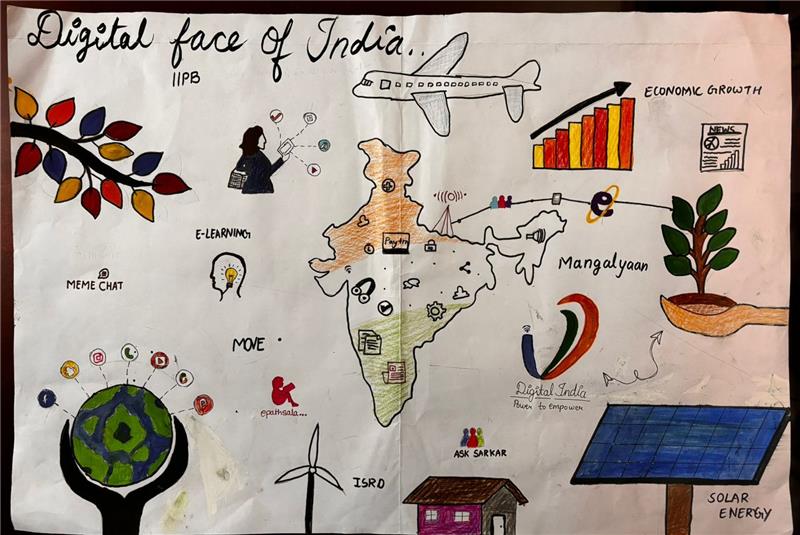 Digital face of India..
IIPB
ECONOMIC GROWTH
NEWS
E-LEARNING
Paytm
Mangalyaan
MEME CHAT
MOVE
epathsala...
Digital India
Power to Empower
ASK SARKAR
ISRO
SOLAR
ENERGY